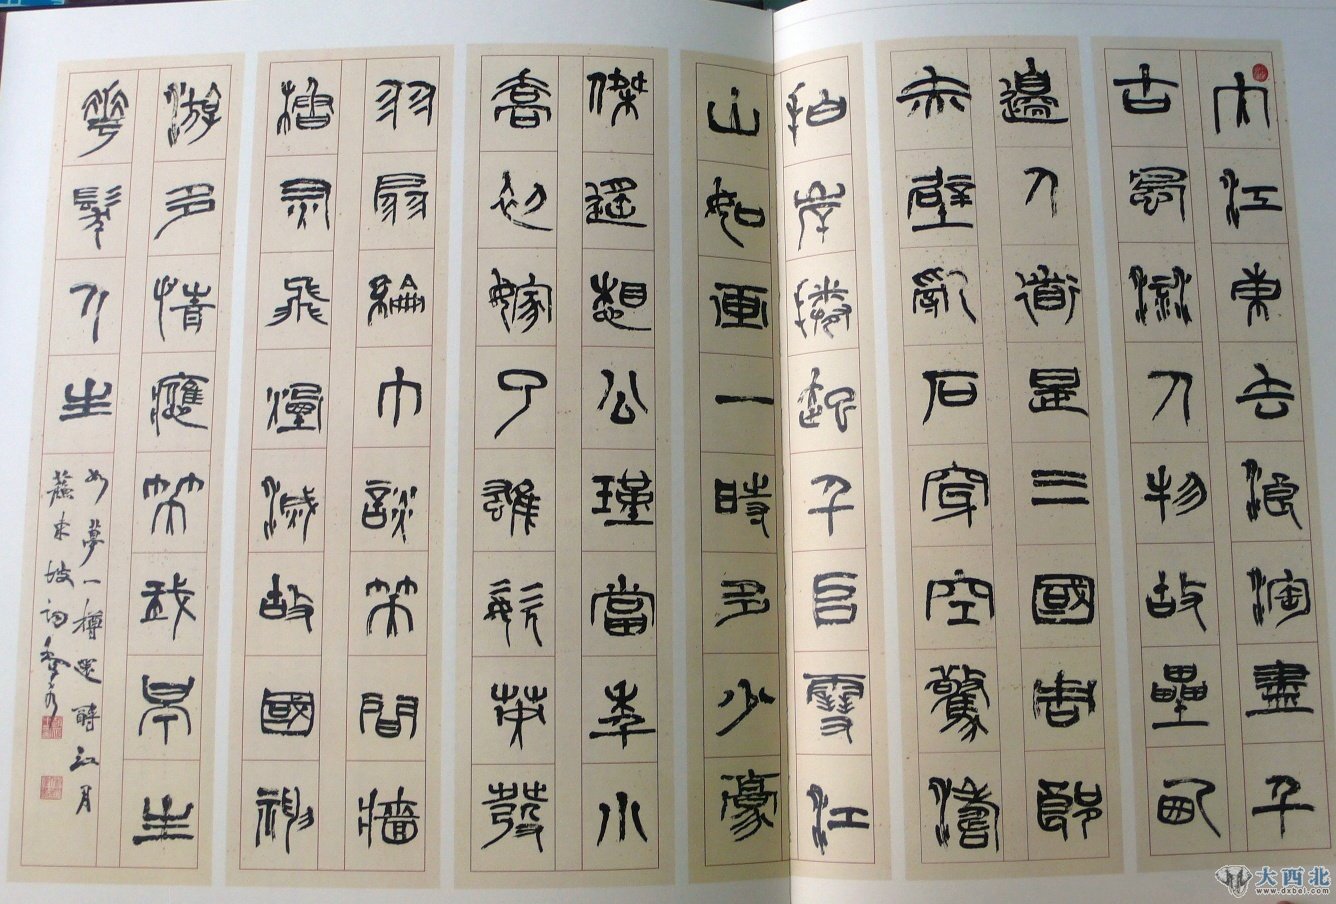 大江東去浪淘盡千
古風流人物故壘西
邊人道是三國周郎
赤壁亂石穿空驚濤
拍岸捲起千堆雪江
山如畫一時多少豪
傑遙想公瑾當年小
喬初嫁了雄姿英發
羽扇綸巾談笑間牆
櫓灰飛煙滅故國神
游多情應笑我早生
華髮人生
如夢一樽還酹江月
蘇東坡詞
大西北
www.dxbei.com